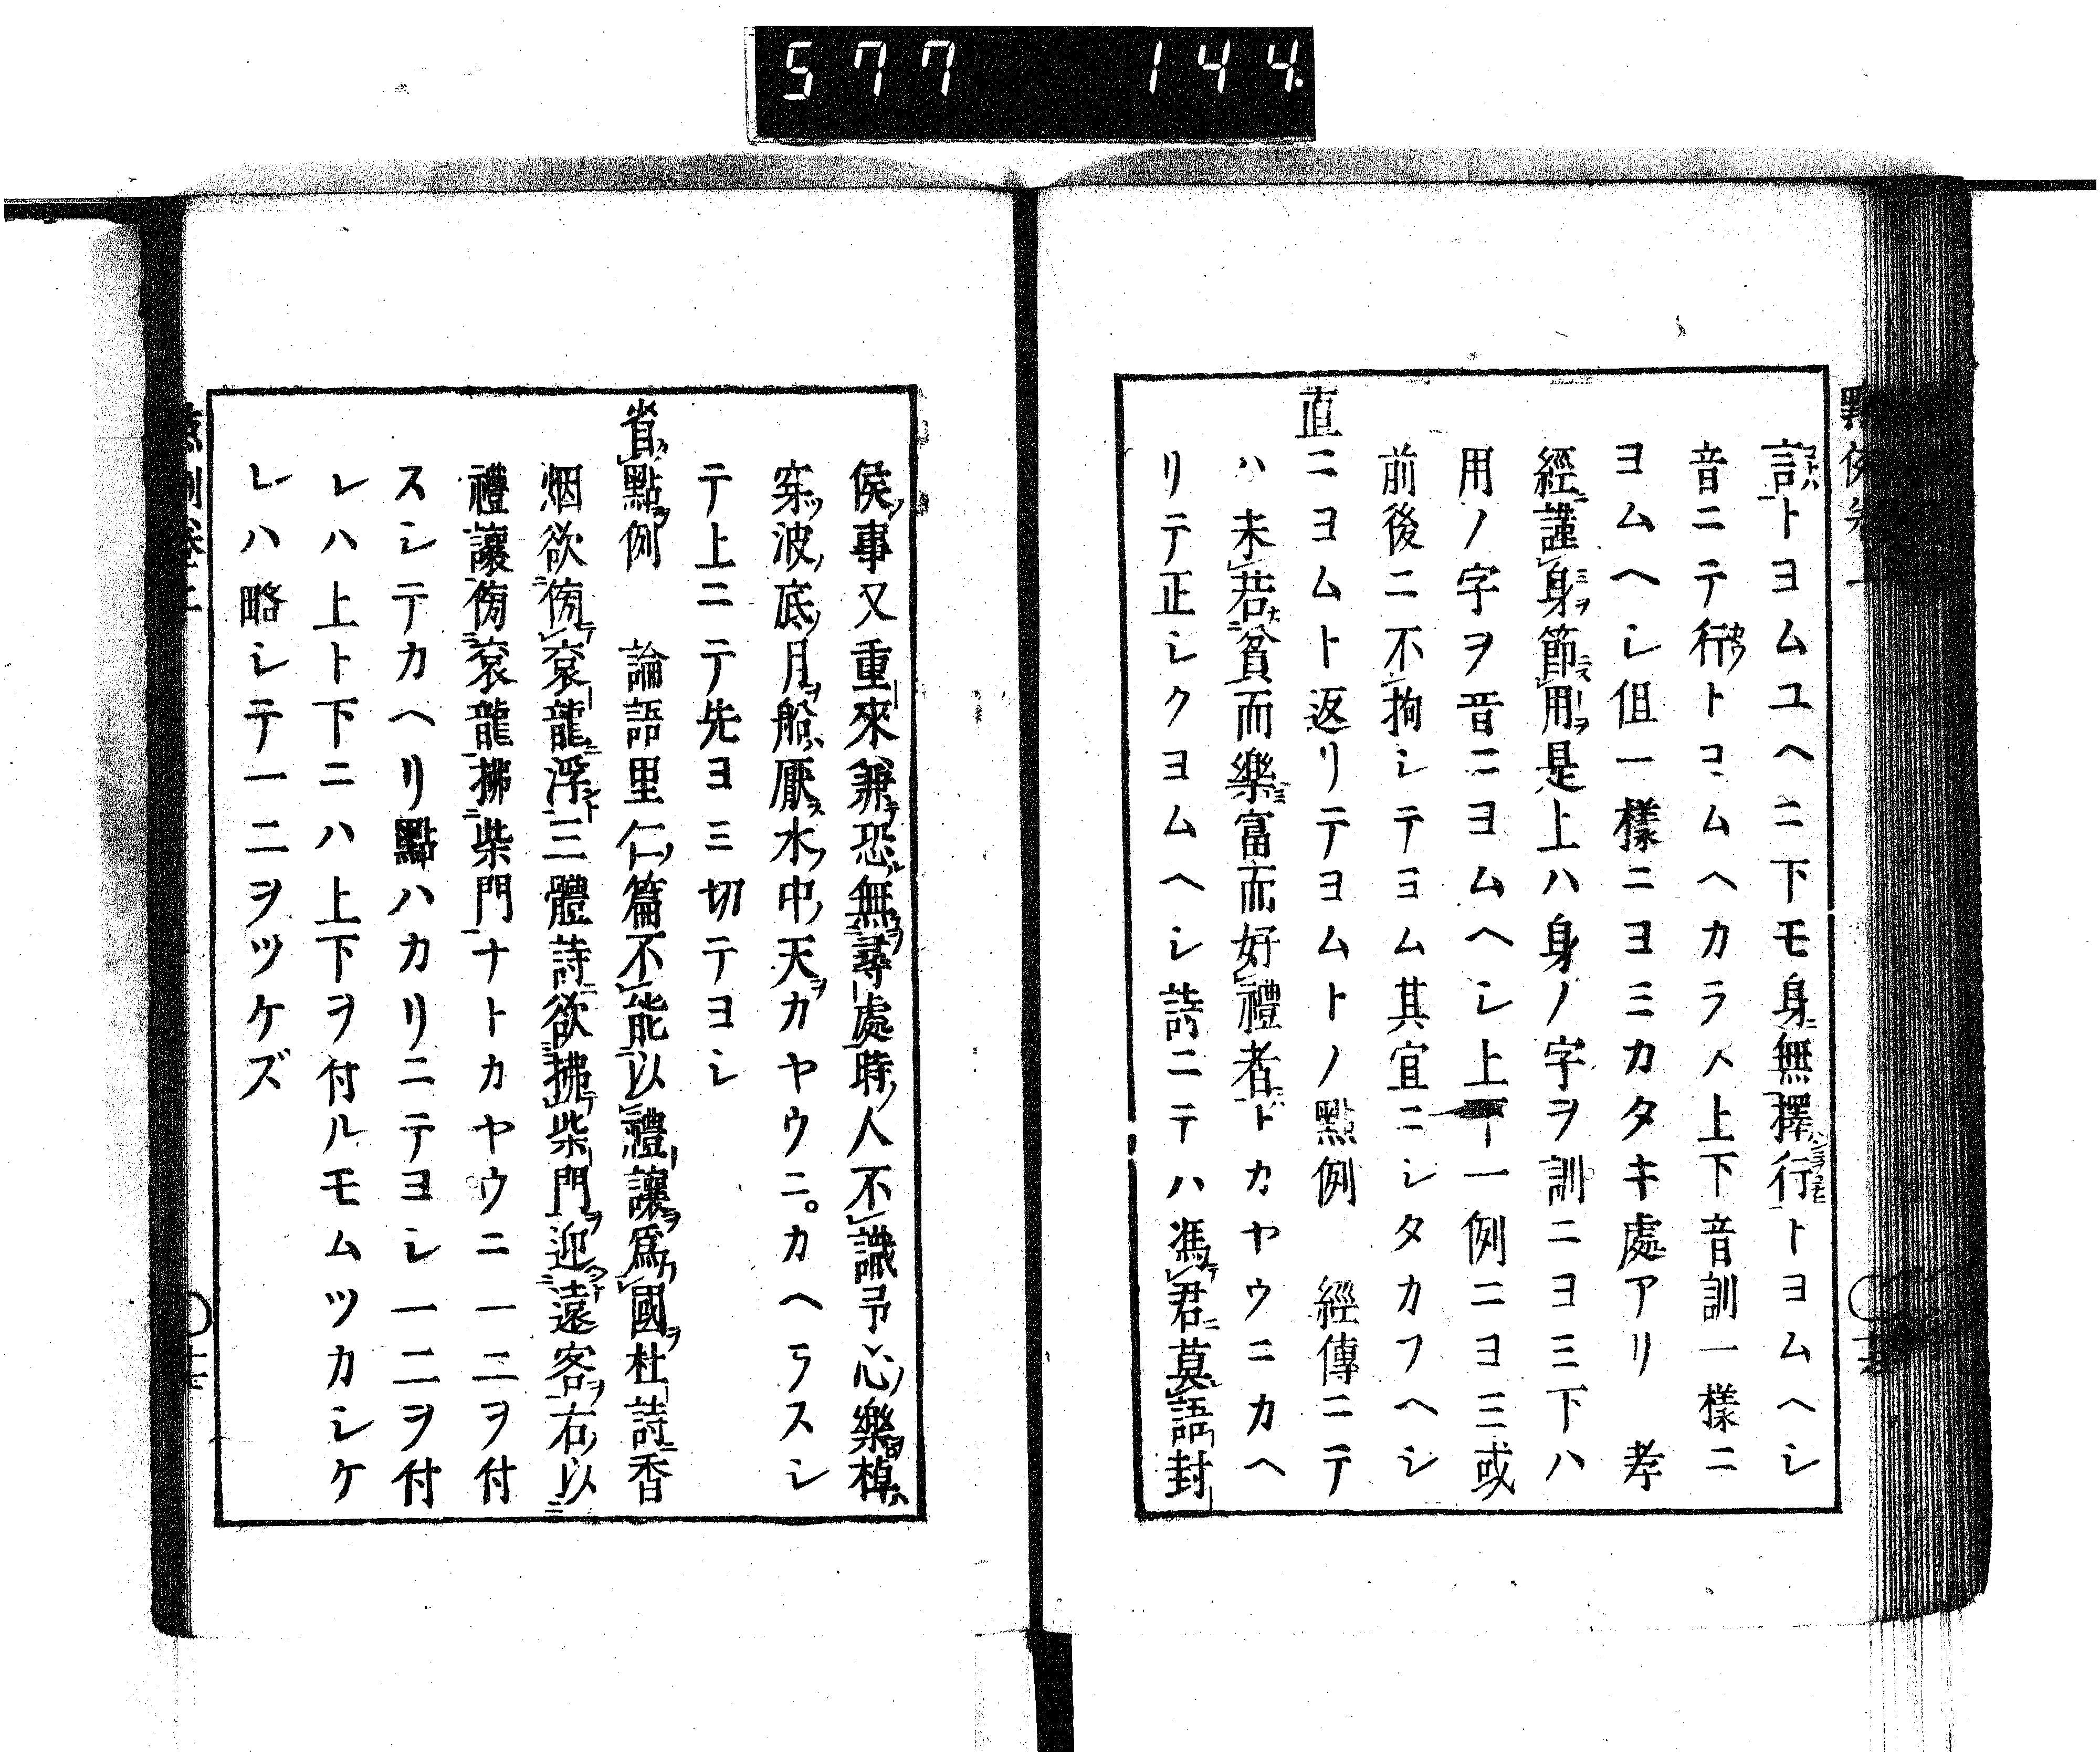 577 144
言トヨムユヘニ下モ身無擇行トヨムヘシ
音ニテ行トヨムヘカラス上下音訓一樣ニ
ヨムヘシ但一樣ニヨミカタキ處アリ 孝
經謹身節用是上ハ身ノ字ヲ訓ニヨミ下ハ
用ノ字ヲ音ニヨムヘシ上下一例ニヨミ或
前後ニ不拘シテヨム其宜ニシタカフヘシ
直ニヨムト返リテヨムトノ點例 經傳ニテ
ハ未若貧而樂富而好禮者トカヤウニカヘ
リテ正シクヨムヘシ詩ニテハ馮君莫語封
侯事又重來兼恐無尋處時人不識予心樂棹
穿波底月船厭水中天カヤウニ。カヘラスシ
テ上ニテ先ヨミ切テヨシ
省點例 論語里仁篇不能以禮讓爲國杜詩香
烟欲傍袞龍浮三體詩欲拂柴門迎遠客右以
禮讓傍袞龍拂柴門ナトカヤウニ一二ヲ付
スシテカヘリ點ハカリニテヨシ一二ヲ付
レハ上ト下ニハ上下ヲ付ルモムツカシケ
レハ略シテ一二ヲツケズ